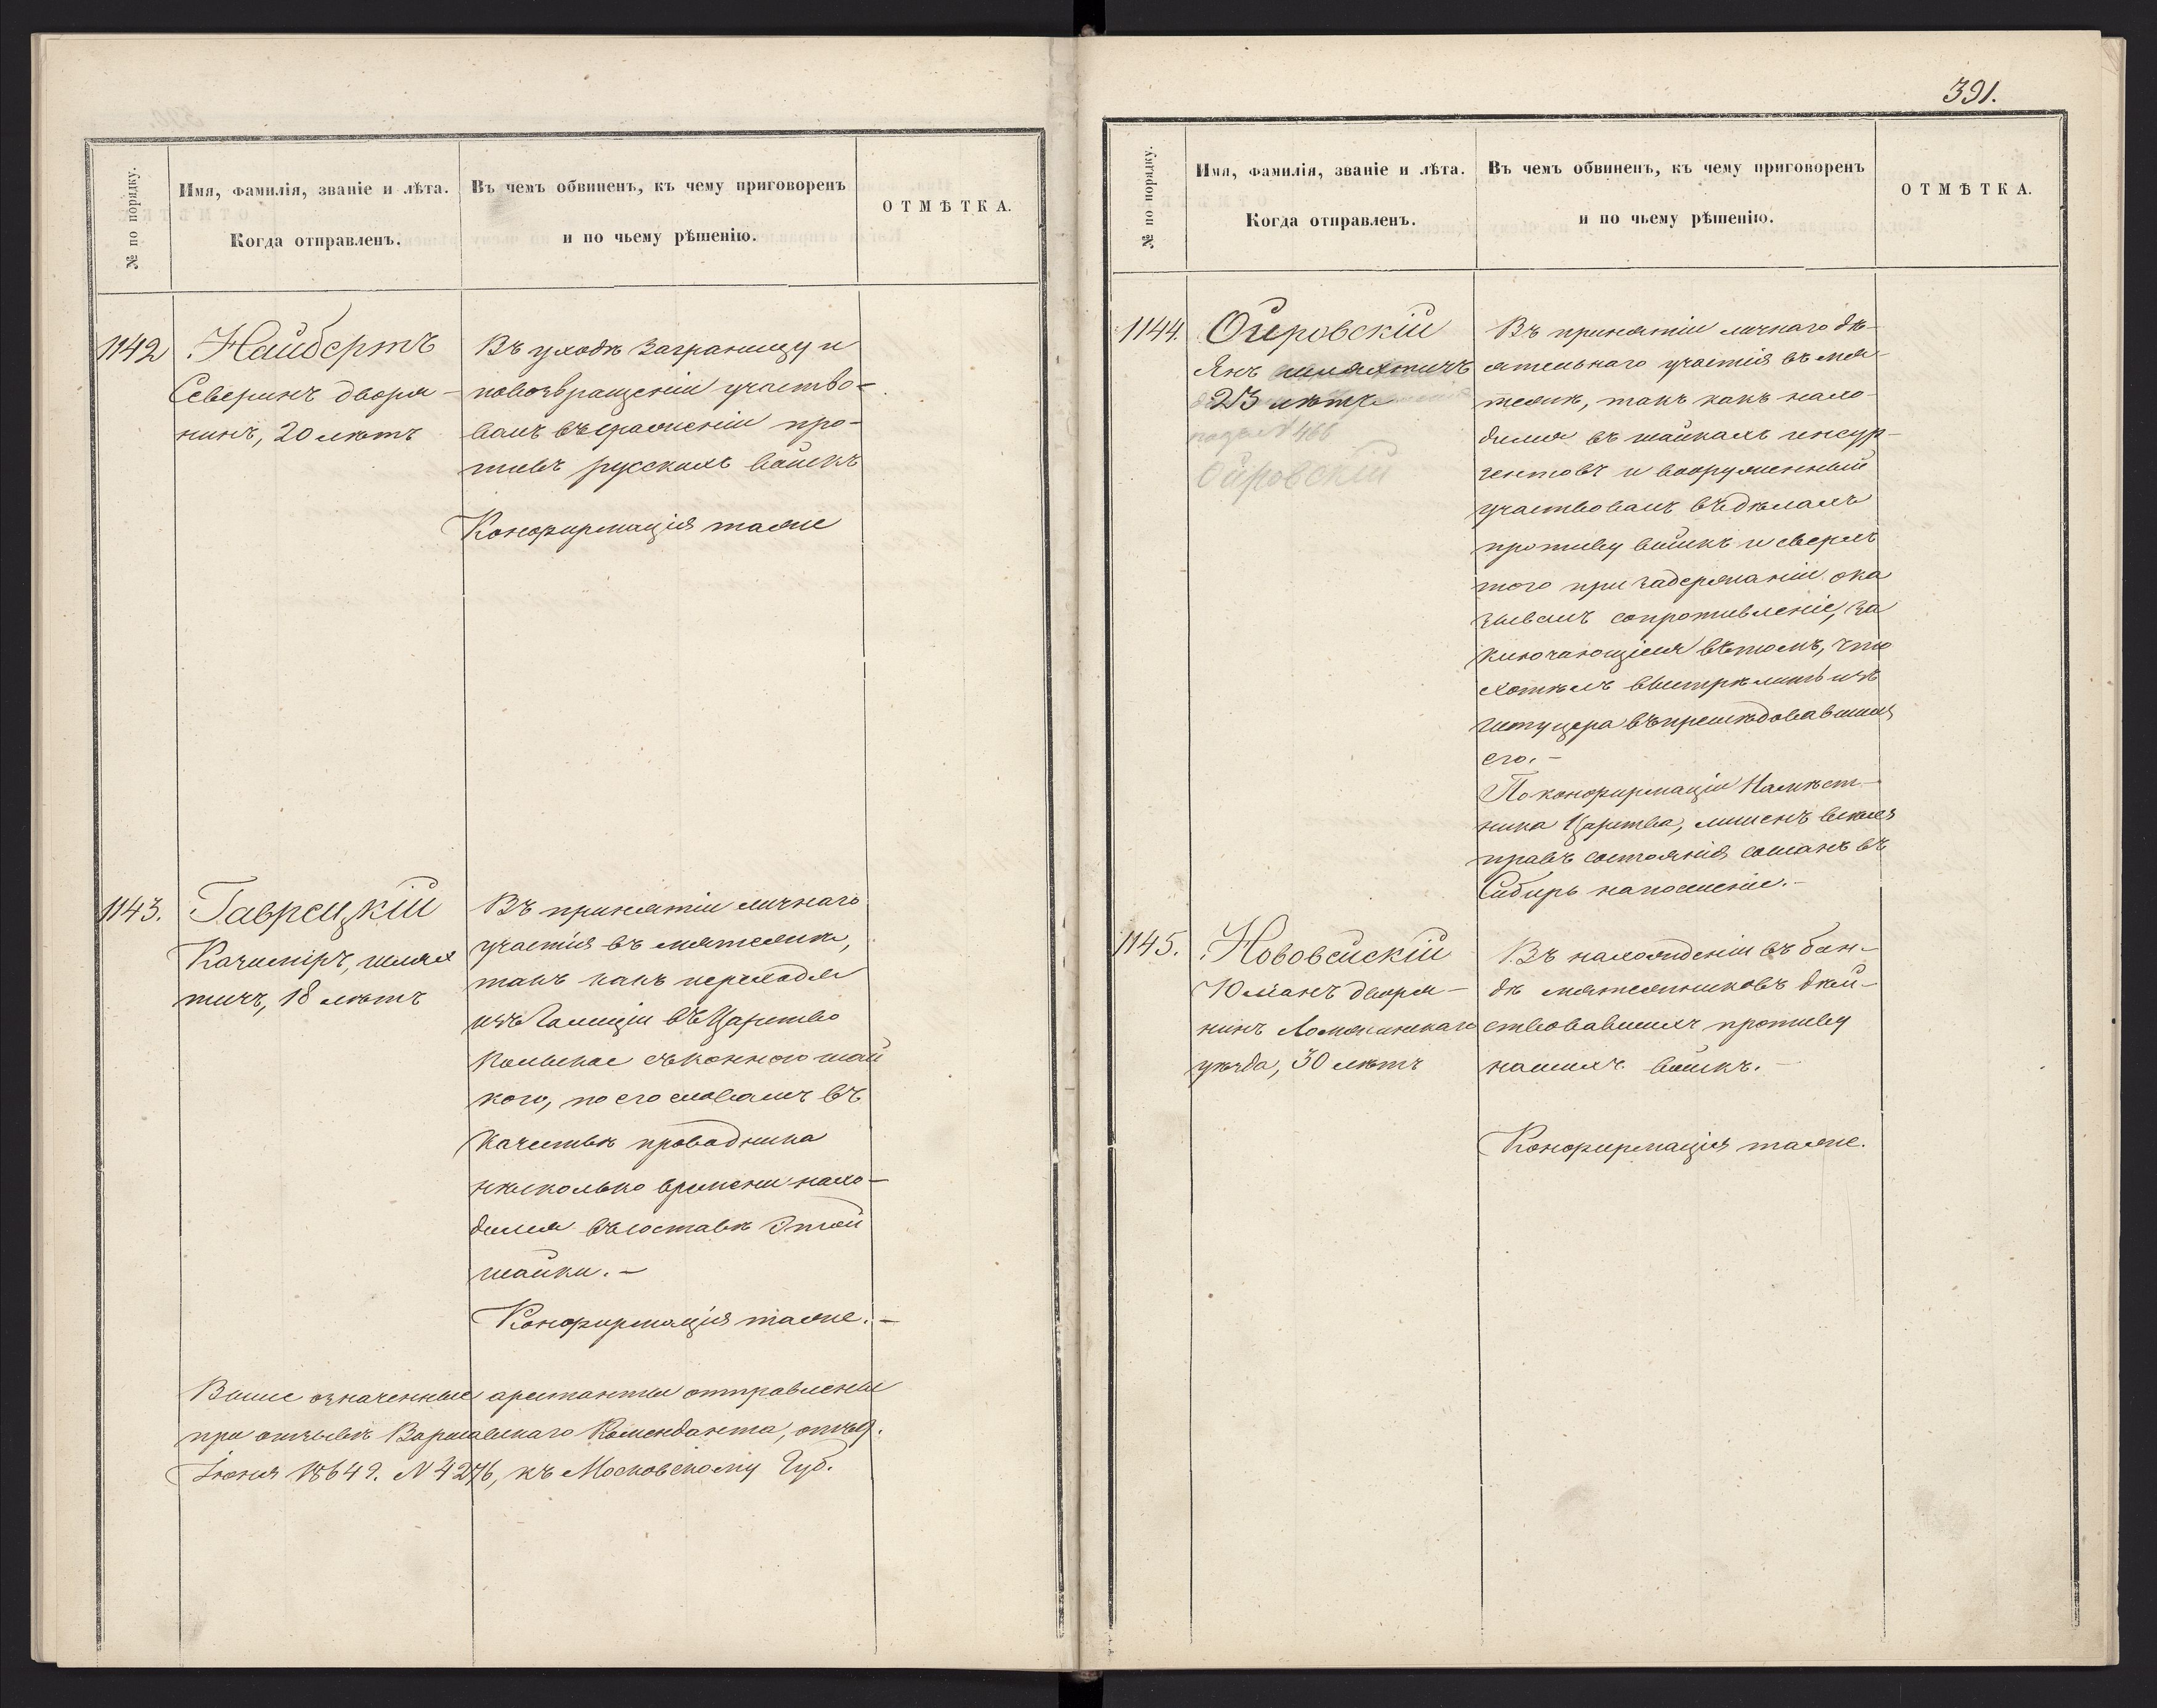 № по порядку.
Имя, фамилія, званіе и лѣта.
Когда отправленъ.
Въ чемъ обвиненъ, къ чему приговоренъ
и по чьему рѣшенію.
ОТМѢТКА.
1142
Найбертъ
Северинъ дворя-
нинъ, 20 лѣтъ
Въ уходѣ заграницу и
по возвращеніи участво-
валъ въ сраженіи про-
тивъ русскихъ войскъ
Конфирмація таже
1143.
Гаврецкій
Казиміръ, шлях
тичъ, 18 лѣтъ
Въ принятіи личнаго
участія въ мятежѣ,
такъ какъ переходя
изъ Галиціи въ Царство
Польское съ конною шай
кою, по его словамъ въ
качествѣ проводника
нѣсколько времени нахо-
дился въ составѣ этой
шайки.-
Конфирмація таже.-
Выше означенные арестанты отправлены
при отзывѣ Варшавскаго Коменданта, отъ 9.
Іюня 1864 г. N 4276, къ Московскому Губ.
391.
№ по порядку.
Имя, фамилія, званіе и лѣта.
Когда отправленъ.
Въ чемъ обвиненъ, къ чему приговоренъ
и по чьему рѣшенію.
ОТМѢТКА.
1144.
Ожеровскій
Янъ шляхтичъ
23 лѣтъ
подъ N 466
Ойровскій
Въ принятіи личнаго дѣ-
ятельнаго участія въ мя-
тежѣ, такъ какъ нахо-
дился въ шайкахъ инсур-
гентовъ и вооруженный
участвовалъ въ дѣлахъ
противу войскъ и сверхъ
того при задержаніи ока
зывалъ сопротивленіе, за
ключающіеся въ томъ, что
хотѣлъ выстрѣлить изъ
штуцера въ преслѣдовавшихъ
его.-
По конфирмаціи Намѣст-
ника Царства, лишенъ всѣхъ
правъ состоянія сосланъ въ
Сибирь на поселеніе.-
1145.
Нововейскій
Юліанъ дворя-
нинъ Ломжинскаго
уѣзда, 30 лѣтъ
Въ нахожденіи въ бан-
дѣ мятежниковъ дѣй-
ствовавшихъ противу
нашихъ войскъ.-
Конфирмація таже.